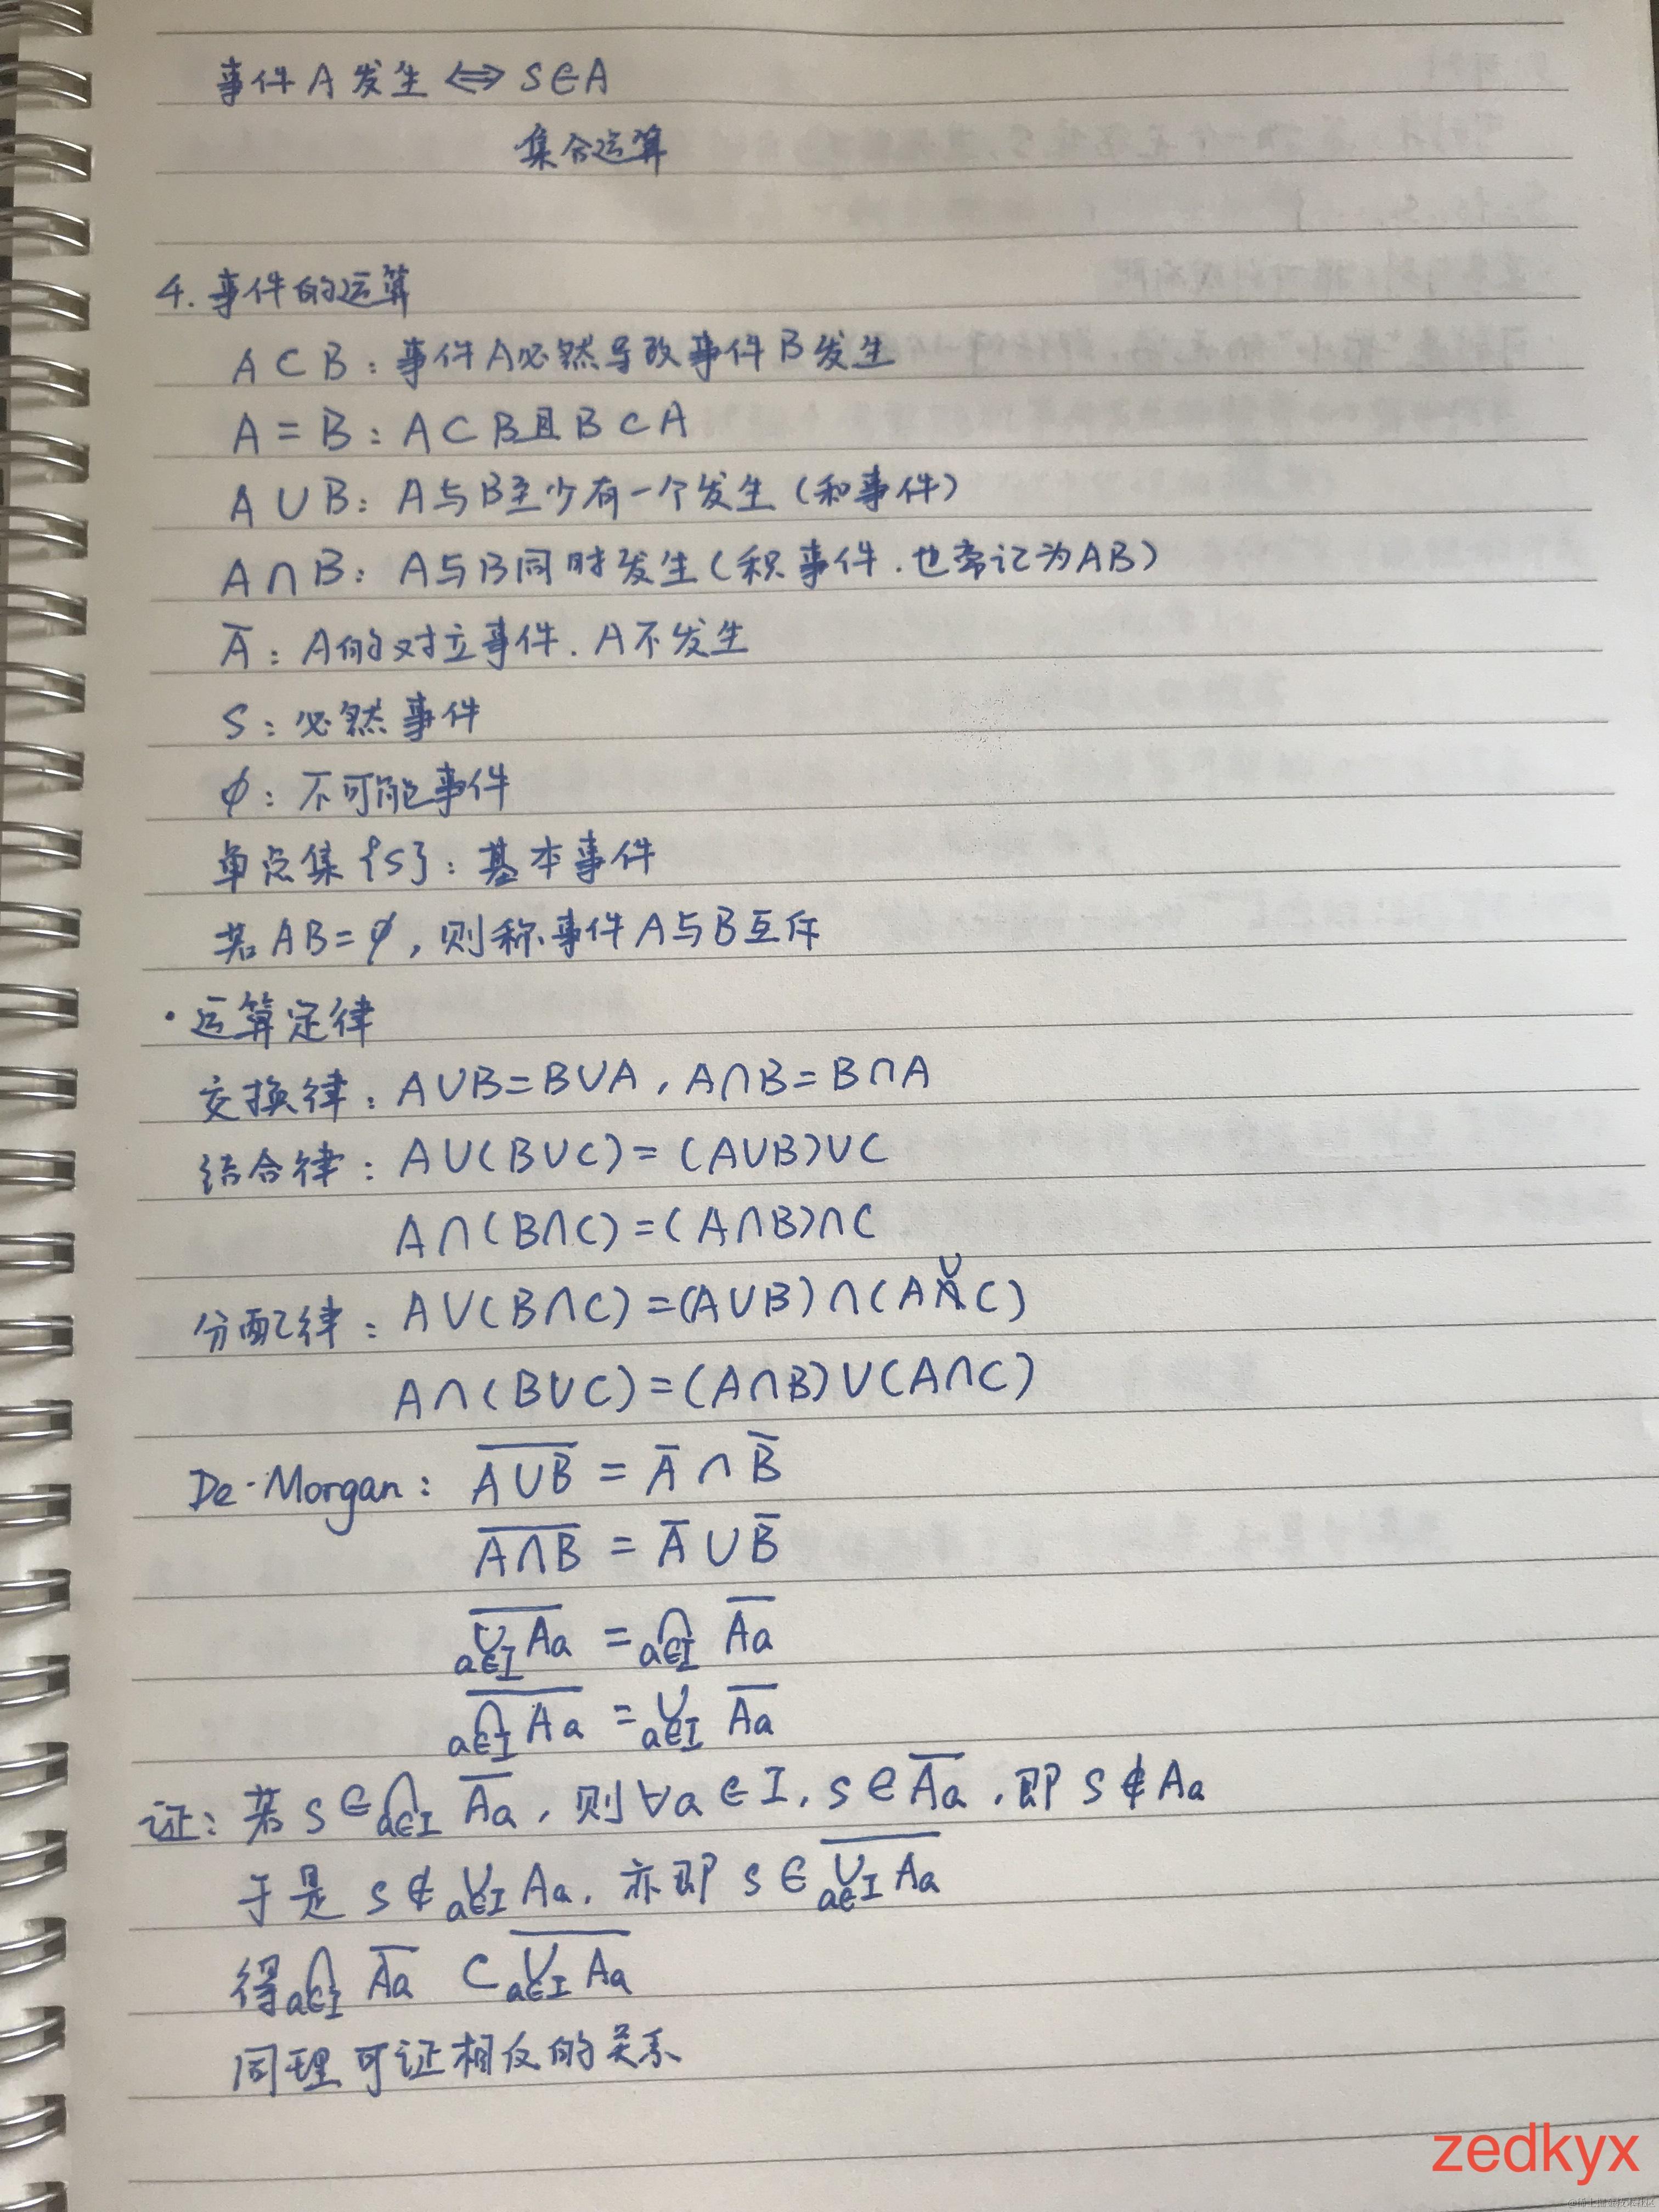 事件A发生 ⇔ S∈A
集合运算
4. 事件的运算
A⊂B：事件A必然导致事件B发生
A=B：A⊂B且B⊂A
A∪B：A与B至少有一个发生（和事件）
A∩B：A与B同时发生（积事件．也常记为AB）
A̅：A的对立事件．A不发生
S：必然事件
∅：不可能事件
单点集{S}：基本事件
若AB=∅，则称事件A与B互斥
·运算定律
交换律：A∪B=B∪A，A∩B=B∩A
结合律：A∪(B∪C)=(A∪B)∪C
A∩(B∩C)=(A∩B)∩C
分配律：A∪(B∩C)=(A∪B)∩(A∪C)
A∩(B∪C)=(A∩B)∪(A∩C)
De-Morgan：\overline{A∪B} = A̅ ∩ B̅
\overline{A∩B} = A̅ ∪ B̅
\overline{∪_{a∈I} Aa} = ∩_{a∈I} \overline{Aa}
\overline{∩_{a∈I} Aa} = ∪_{a∈I} \overline{Aa}
证：若 S∈∩_{a∈I} \overline{Aa}，则∀a∈I．S∈\overline{Aa}．即 S∉Aa
于是 S∉∪_{a∈I} Aa．亦即 S∈\overline{∪_{a∈I} Aa}
得∩_{a∈I} \overline{Aa} ⊂ \overline{∪_{a∈I} Aa}
同理可证相反的关系
zedkyx